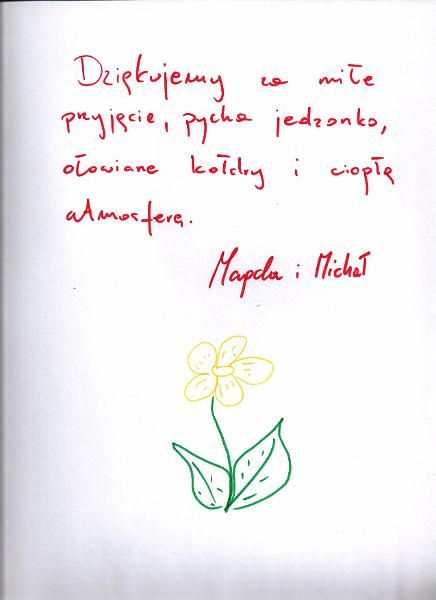 Dziękujemy za miłe
przyjęcie, pycha jedzonko,
ołowiane kołdry i ciepłą
atmosferę.
Magda i Michał